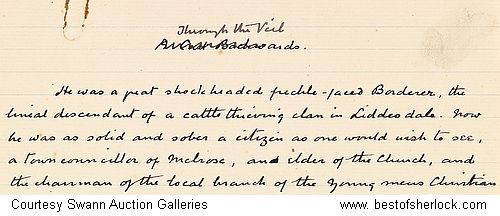 Through the Veil
He was a great shock-headed freckle-faced Borderer, the
lineal descendant of a cattle thieving clan in Liddesdale. Now
he was as solid and sober a citizen as one would wish to see,
a town councillor of Melrose, an elder of the Church, and
the chairman of the local branch of the Young mens Christian
Courtesy Swann Auction Galleries www.bestofsherlock.com